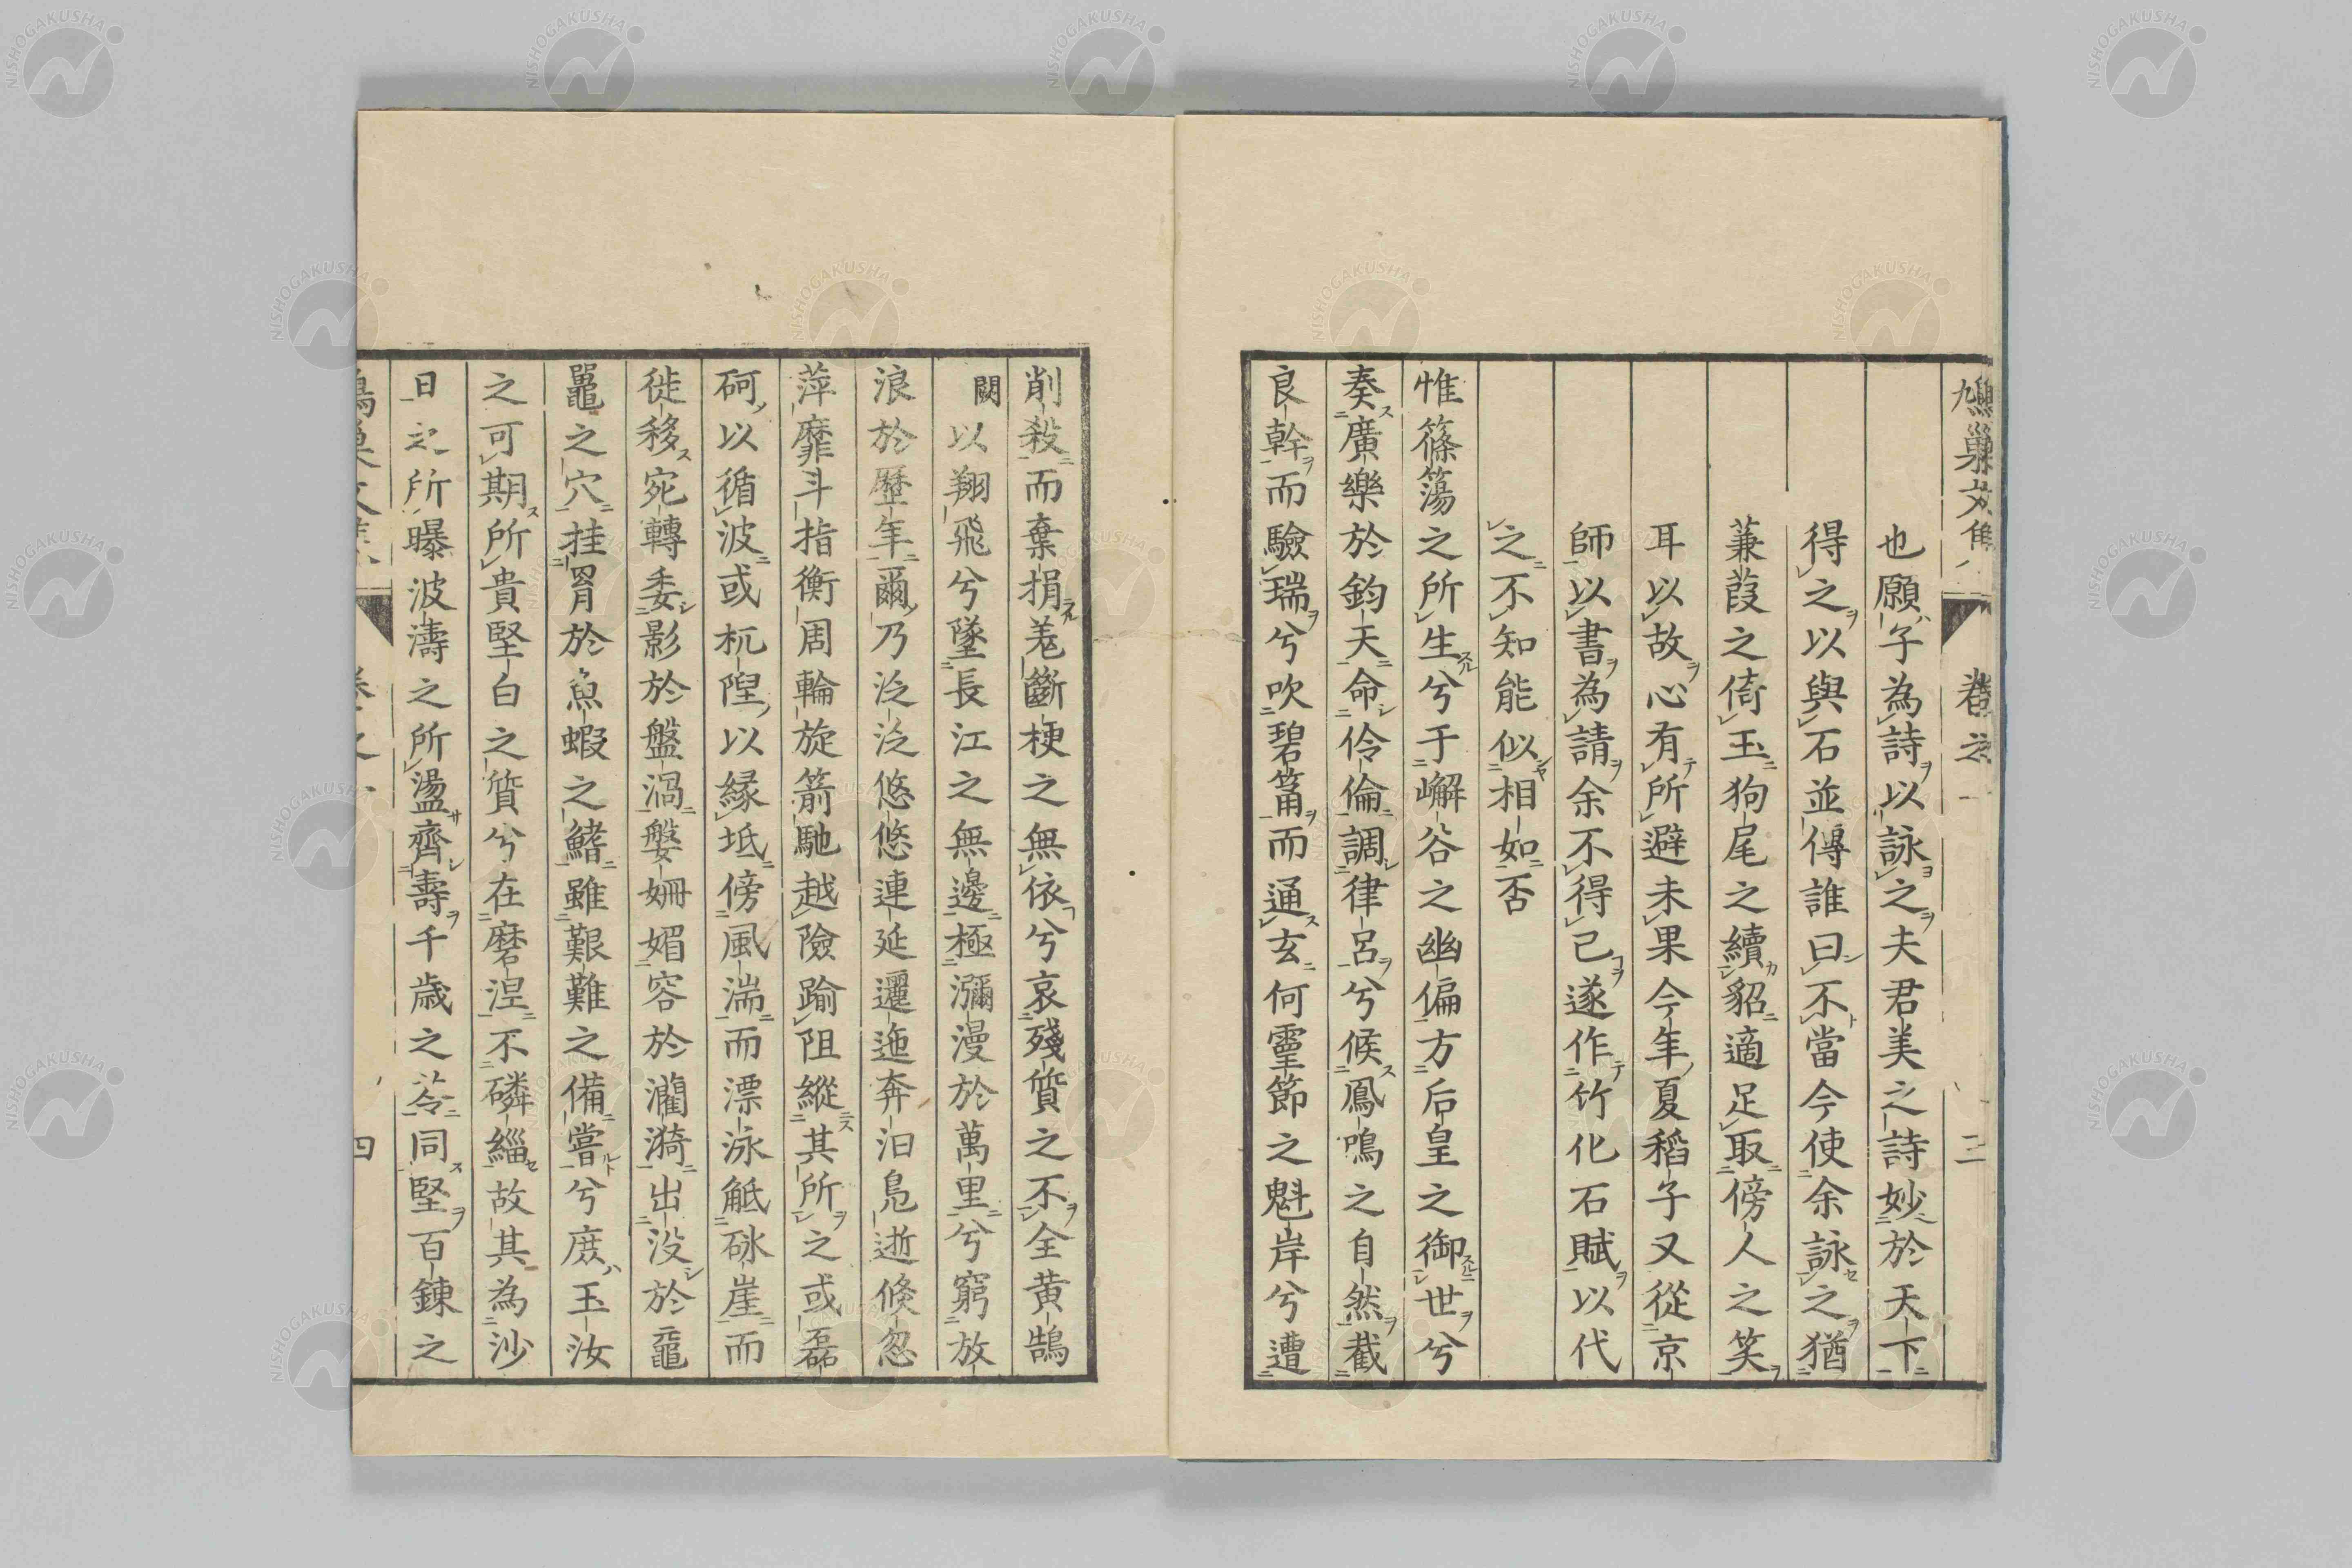 鳩巢文集 卷之一 三
也願子為詩以詠之夫君美之詩妙於天下
得之以與石並傳誰曰不當今使余詠之猶
蒹葭之倚玉狗尾之續貂適足取傍人之笑
耳以故心有所避未果今年夏稻子又從京
師以書為請余不得已遂作竹化石賦以代
之不知能似相如否
惟篠簜之所生兮于嶰谷之幽偏方后皇之御世兮
奏廣樂於鈞天命伶倫調律呂兮候鳳鳴之自然截
良幹而驗瑞兮吹碧篇而通玄何靈節之魁岸兮遭
削殺而棄捐羗斷梗之無依兮哀殘質之不全黄鵠
闕以翔飛兮墜長江之無邊極瀰漫於萬里兮窮放
浪於歷年爾乃泛泛悠悠連延邐迤奔汩鳧逝倐忽
萍靡斗指衡周輪旋箭馳越險踰阻縱其所之或磊
砢以循波或杌隉以緣坻傍風湍而漂泳觝硡崖而
徙移宛轉委影於盤渦媻姍媚容於灡漪出没於黿
鼉之穴挂罥於魚蝦之鰭雖艱難之備嘗兮庶玉汝
之可期所貴堅白之質兮在磨涅不磷緇故其為沙
日之所曝波濤之所盪齊壽千歳之苓同堅百鍊之
四
NISHOGAKUSHA